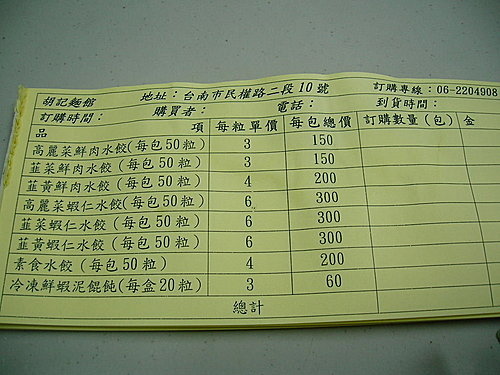 胡記麵館 地址：台南市民權路二段10號 訂購專線：06-2204908
訂購時間： 購買者： 電話： 到貨時間：
品 項 每粒單價 每包總價 訂購數量（包） 金
高麗菜鮮肉水餃(每包50粒) 3 150
韮菜鮮肉水餃(每包50粒) 3 150
韮黃鮮肉水餃(每包50粒) 4 200
高麗菜蝦仁水餃(每包50粒) 6 300
韮菜蝦仁水餃(每包50粒) 6 300
韮黃蝦仁水餃(每包50粒) 6 300
素食水餃(每包50粒) 4 200
冷凍鮮蝦泥餛飩(每盒20粒) 3 60
總計